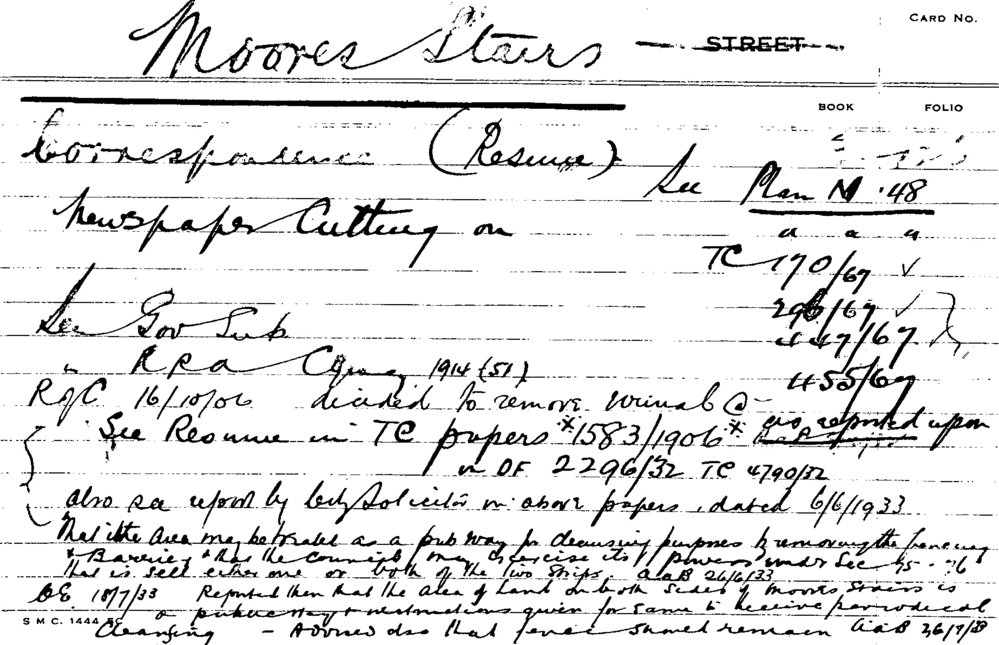 CARD No.
Moores Stairs — STREET
BOOK FOLIO
Correspondence (Resume)
See Plan M .48
Newspaper Cutting on
" " "
TC 170/67 ✓
296/67 ✓
See Gov Sub
447/67
" R R a 1914 (51)
455/67
R of C 16/10/06 decided to remove urinal @
as reported upon
See Resume in TC papers * 1583/1906 *
in DF 2296/32 TC 4790/32
also see report by City Solicitor in above papers, dated 6/6/1933
That the area may be treated as a pub way for cleansing purposes & removing the
& Barrier & that the Council may exercise its powers under Sec 75 - 76
that is sell either one or both of the Two Strips, 26/6/33
CE 18/7/33 Reported then that the area of land on both sides of Moores Stairs is
a public way & instructions given for same to receive periodical
S M C. 1444
Cleansing – Advised also that fence should remain